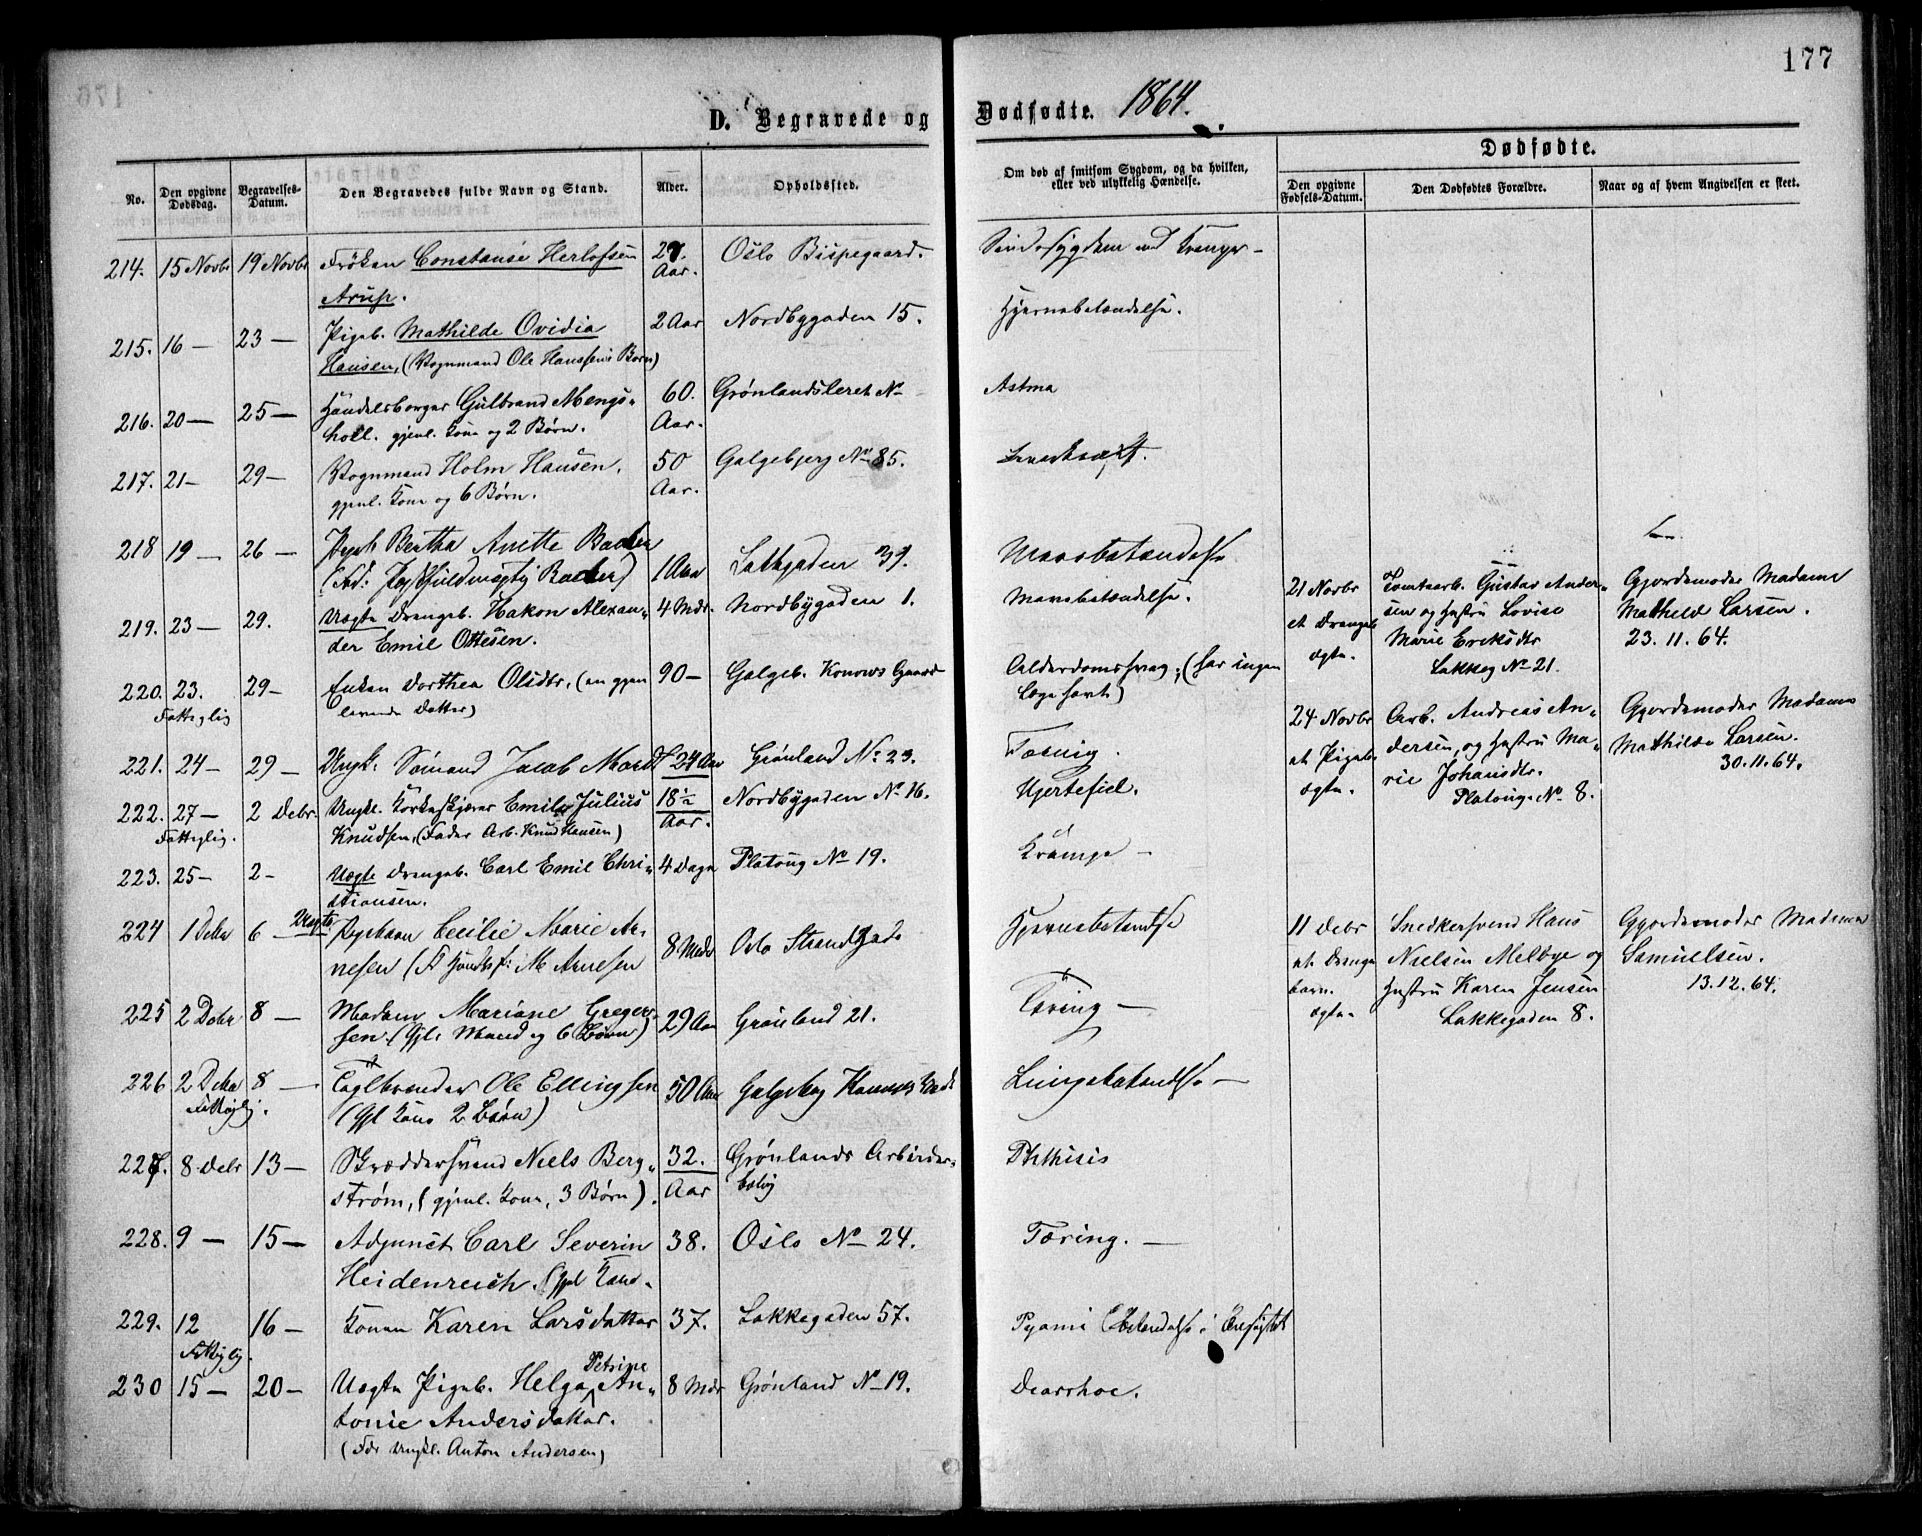 177
D. Begravede og Dødfødte. 1864.
No.
Den opgivne Dødsdag.
Begravelses-Datum.
Den Begravedes fulde Navn og Stand.
Alder.
Opholdssted.
Om død af smitsom Sygdom, og da hvilken,
eller ved ulykkelig Hændelse.
Dødfødte.
Den opgivne Fødsels-Datum.
Den Dødfødtes Forældre.
Naar og af hvem Angivelsen er skeet.
214. 15 Novbr 19 Novbr Frøken Constanse Herlofsen 27. Oslo Bispegaard.
Arup. Aar.
215. 16 — 23 — Pigeb. Mathilde Ovidia 2 Aar Nordbygaden 15. Hjernebetændelse.
Hansen, (Vognmand Ole Hanssens Barn)
216. 20 — 25 — Handelsborger Gulbrand Mengs- 60. Grønlandsleret No Astma
holl. gjenl. Kone og 2 Børn. Aar.
217. 21 — 29 — Vognmand Holm Hansen, 50 Galgebjerg No 85.
gjenl. Kone og 6 Børn. Aar.
218 19 — 26 — Pigeb Bertha Anette 1 Aar 37. Mavebetændelse
219. 23 — 29. Uægte Drengeb. Hakon Alexan- 4 Mdr. Nordbygaden 1. Mavebetændelse.
der Emil Ottesen.
220. 23. 29 — Enken Dorthea Olsdtr, (en gjen 90 — Galgeb. Konows Gaard Alderdomssvag, (har ingen
Fattiglig levende Datter) Læge havt)
221. 24 — 29 — Ungk. Sømand Jacob 24 Aar Grønland No 23.
222. 27 — 2 Debr. Ungk. Korkeskjærer Emil Julius 18 1/2 Nordbygaden No 16. Hjertefeil.
Fattiglig. Knudsen, (Fader Arb. Knud Hansen) Aar.
223. 25 — 2 — Uægte Drengeb. Carl Emil Chri- 4 Dage Platoug No 19. Krampe —
stiansen.
224 1 Debr 6 — Uægte Pigebarn Cecilie Marie Ar- 8 Mdr Oslo Strandgade Hjernebetændelse
nesen
225 2 Debr 8 — Madam Mariane Greger- 29 Aar Grønland 21. Tæring —
sen. (Gjl. Mand og 6 Børn)
226 2 Debr 8 — Teglbrænder Ole Ellingsen 50 Aar Lungebetændelse —
Fattiglig. (Gjl Kone 2 Børn)
227. 8 Debr 13 — Skræddersvend Niels Berg- 32. Grønlands Arbeider- Phthisis
strøm, (gjenl. Kone, 3 Børn). Aar bolig
228. 9 — 15 — Adjunct Carl Severin 38. Oslo No 24. Tæring. —
Heidenreich. (Gjl Kone.
229. 12 16 — Konen Karen Larsdatter 37. Lakkegaden 57.
Fattiglig.
230 15 — 20 — Uægte Pigeb. Helga Petrine An- 8 Mdr Grønland No 19. Dearrhoe.
tonie Andersdatter.
(Far Ungkl. Anton Andersen)
21 Novbr
et Drengeb
ægte.
Tomtearb. Gustav Ander-
sen og Hustru Lovise
Marie Eriksdtr
Lakkeg No 21.
Gjordemoder Madame
Mathilde Larsen.
23.11.64.
24 Novbr
et Pigeb.
ægte.
Arb. Andreas An-
dersen, og Hustru Ma-
rie Johansdtr.
Platoug. No 8.
Gjordemoder Madame
Mathilde Larsen.
30.11.64.
11 Debr
et Drenge
barn.
ægte.
Snedkersvend Hans
Nielsen Melbye og
Hustru Karen Jensen
Lakkegaden 8.
Gjordemoder Madame
Samuelsen.
13.12.64.